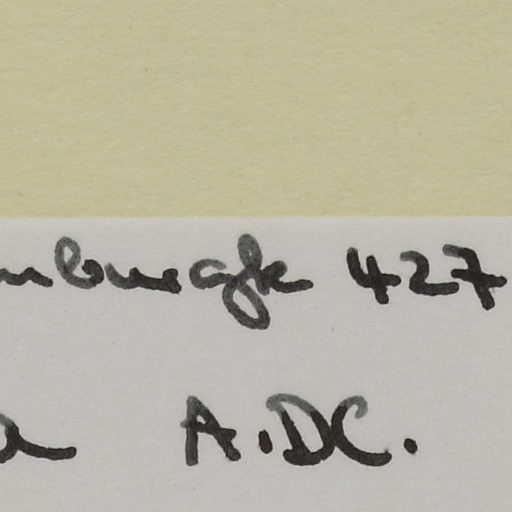 nburgk 427
a A.DC.